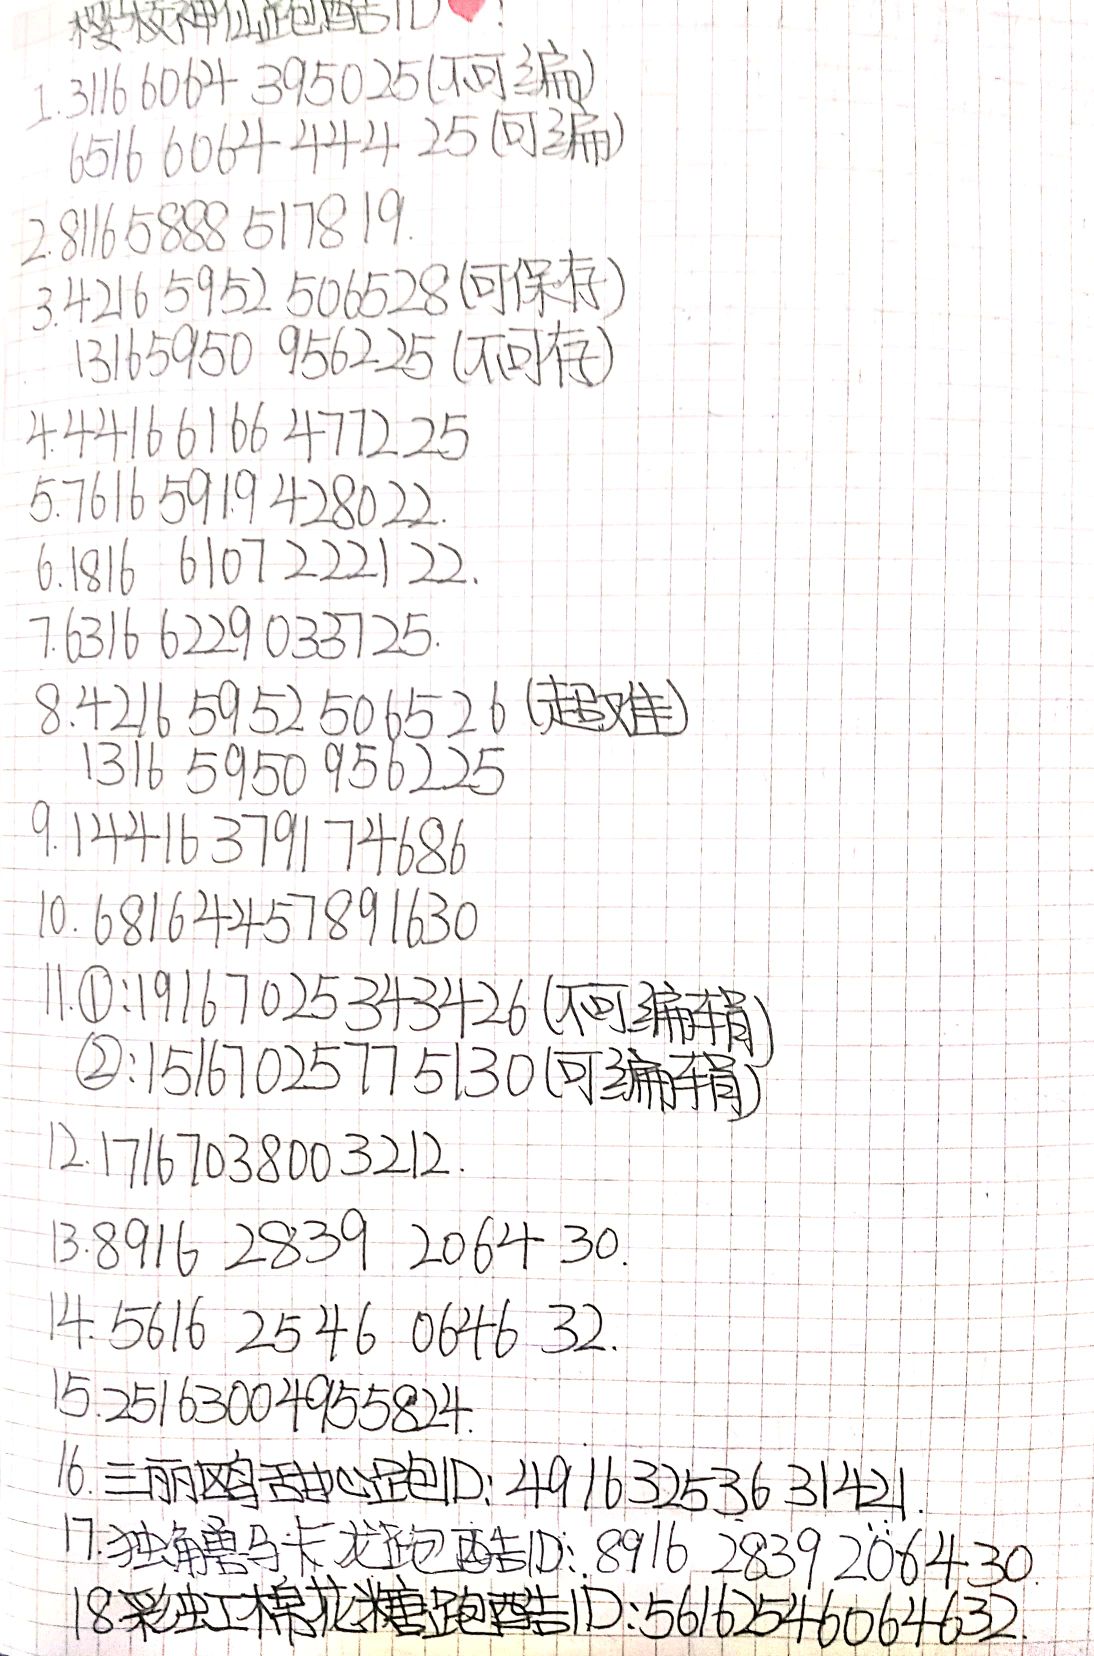 樱校神仙跑酷ID ❤!
1.3116 6064 395025(不可编)
6516 6064 444 25(可编)
2.8116 5888 517819.
3.4216 5952 506528(可保存)
13165950 956225(不可存)
4.4416 6166 477225
5.7616 5919 428022.
6.1816 6107 222122.
7.6316 6229 033725.
8.4216 5952 506526(超难)
1316 5950 956225
9.144163791 74686
10.681644578916 30
11.①:1916 7025 343426(不可编辑)
②:15167025775130(可编辑)
12.17167038003212.
13.8916 2839 2064 30.
14.5616 2546 0646 32.
15.25163004955824.
16.三丽鸥甜心跑ID:49163253631421.
17.独角兽马卡龙跑酷ID:8916 2839 206430.
18彩虹棉花糖跑酷ID:56162546064632.